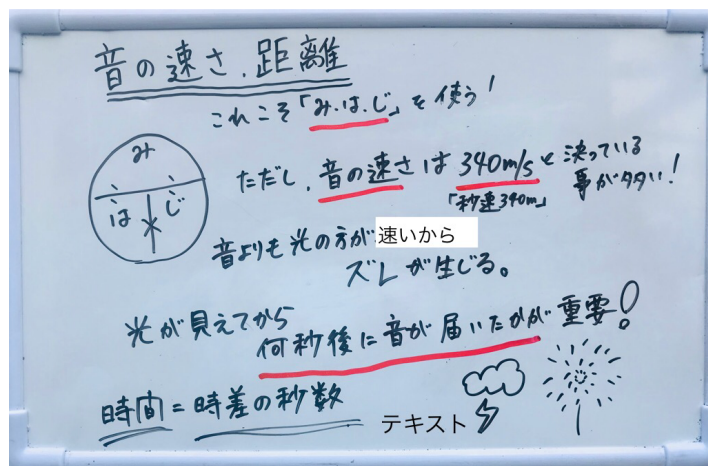 音の速さ、距離
これこそ「み・は・じ」を使う!
み
は じ
ただし、音の速さは340m/sと決っている
事が多い!
「秒速340m」
音よりも光の方が速いから
ズレが生じる。
光が見えてから
何秒後に音が届いたかが重要!
時間=時差の秒数
テキスト